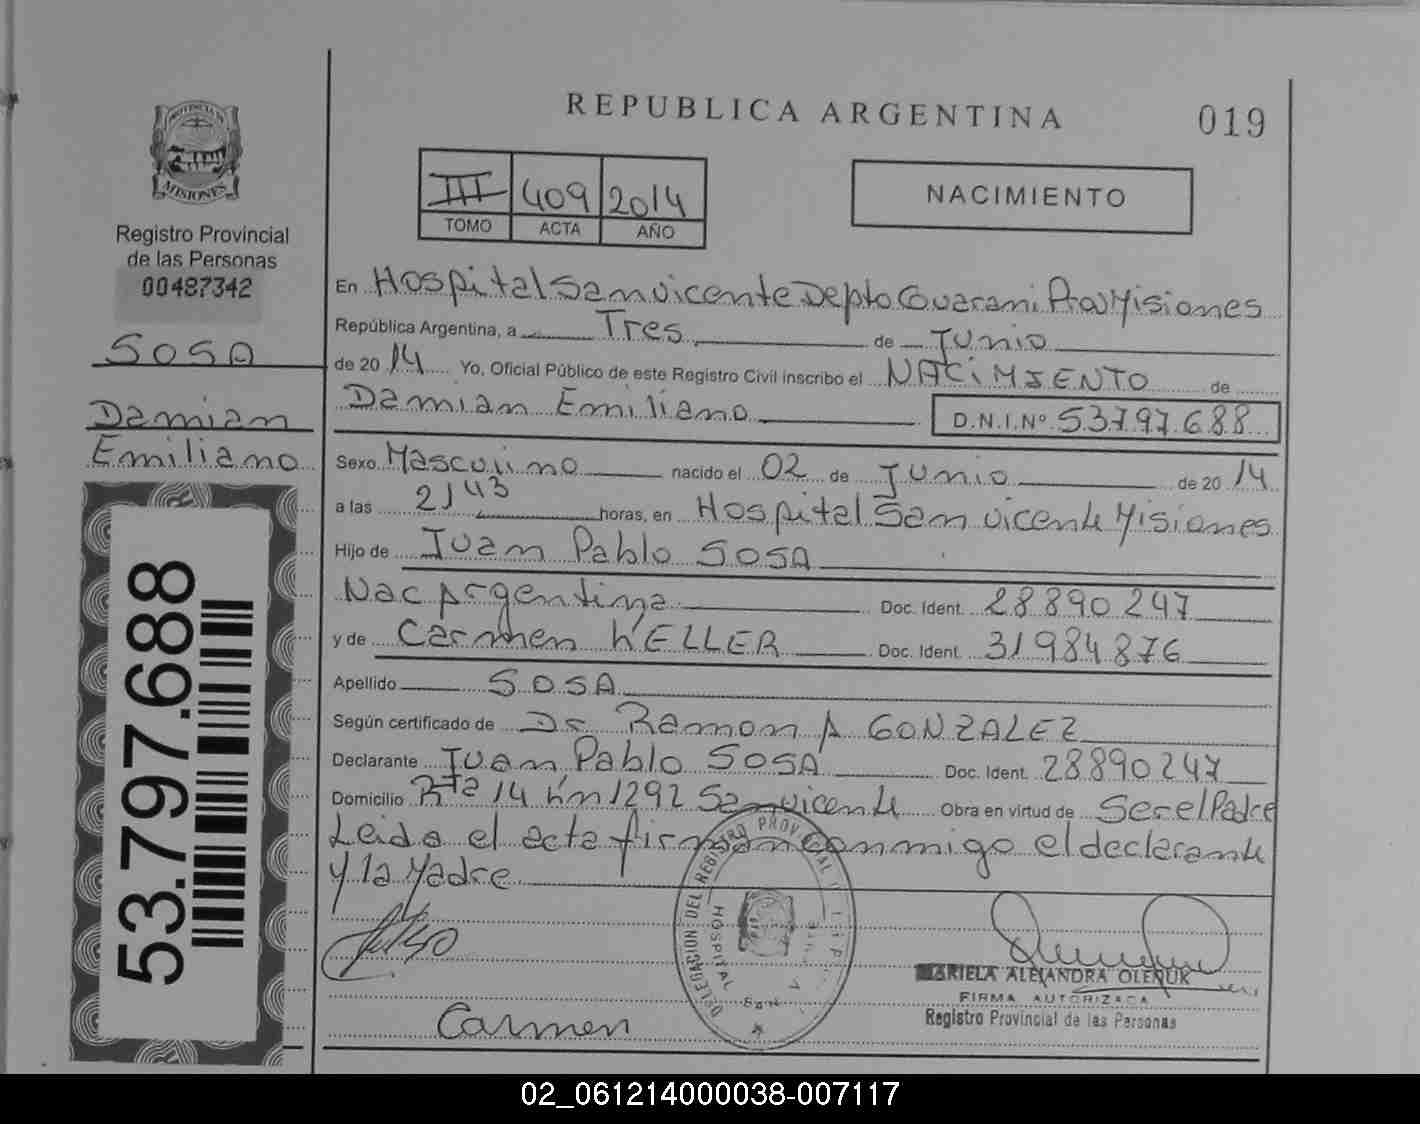 REPUBLICA ARGENTINA
019
PROVINCIA DE
MISIONES
Registro Provincial
de las Personas
00487342
SOSA
Damian
Emiliano
53.797.688
III 409 2014
TOMO ACTA AÑO
NACIMIENTO
En Hospital San vicente Depto Guarani Prov Misiones
República Argentina, a Tres de Junio
de 2014 Yo, Oficial Público de este Registro Civil inscribo el NACIMIENTO de
Damian Emiliano D.N.I.Nº 53.797.688
Sexo Masculino nacido el 02 de Junio de 2014
a las 2143 horas, en Hospital San vicente Misiones
Hijo de Juan Pablo SOSA
Nac Argentina Doc. Ident. 28.890.247
y de Carmen KELLER Doc. Ident. 31.984.876
Apellido SOSA
Según certificado de Dr. Ramon A GONZALEZ
Declarante Juan Pablo SOSA Doc. Ident. 28.890.247
Domicilio Rta 14 km 1292 San vicente Obra en virtud de Ser el Padre
Leida el acta firman conmigo el declarante
y la Madre
DELEGACION DEL REGISTRO PROV
HOSPITAL
Carmen
MARIELA ALEJANDRA OLENUK
FIRMA AUTORIZADA
Registro Provincial de las Personas
02_061214000038-007117